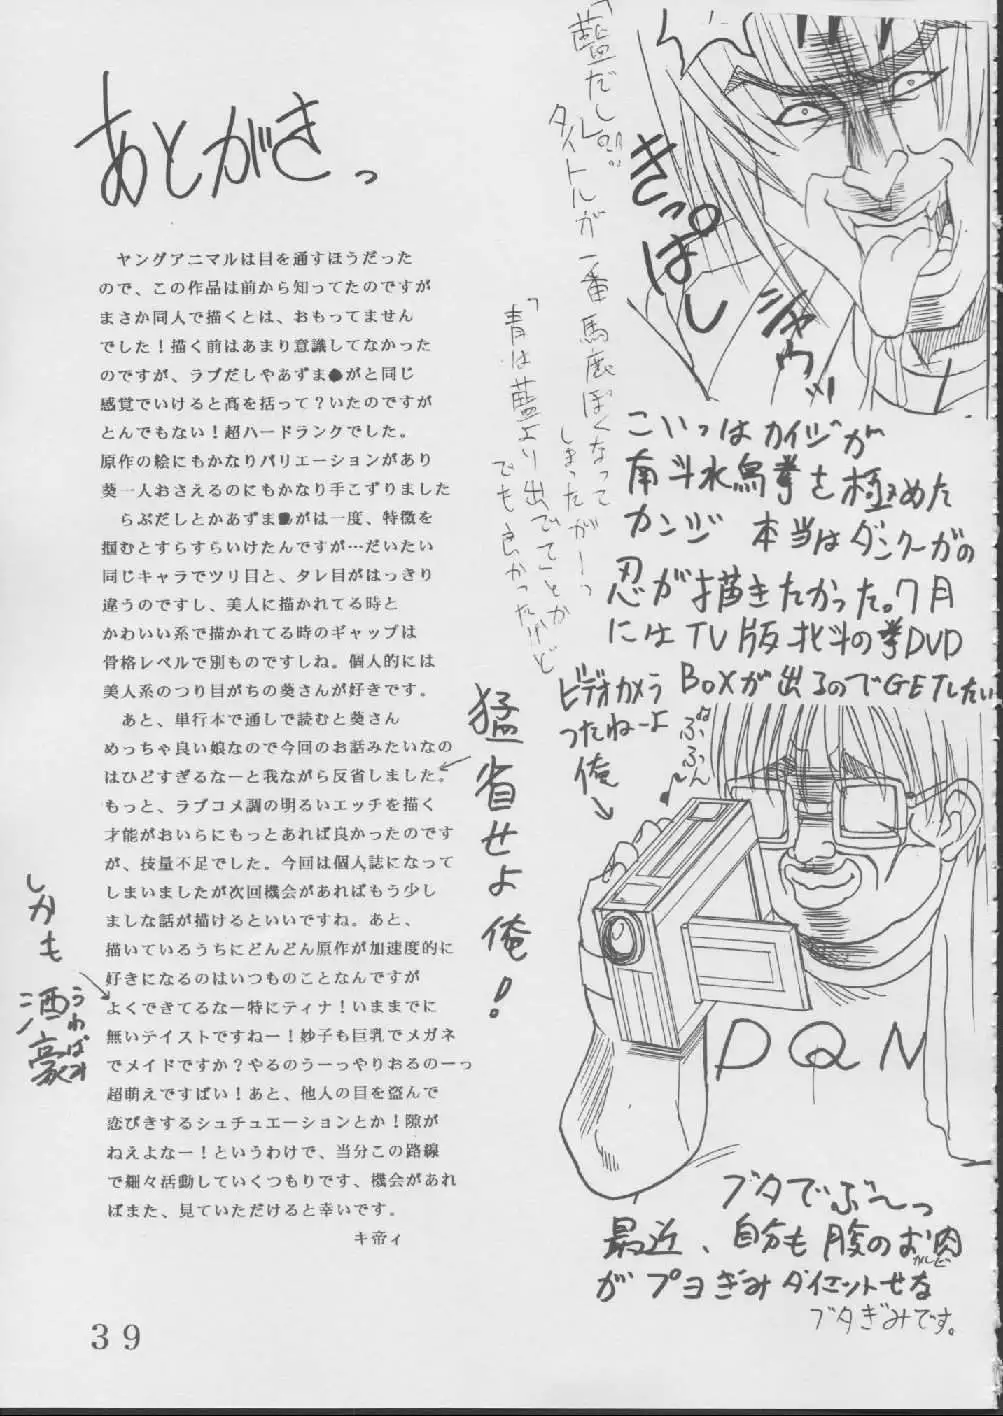 あとがきっ
ヤングアニマルは目を通すほうだった
ので、この作品は前から知ってたのですが
まさか同人で描くとは、おもってません
でした！描く前はあまり意識してなかった
のですが、ラブだしやあずま●がと同じ
感覚でいけると高を括って？いたのですが
とんでもない！超ハードランクでした。
原作の絵にもかなりバリエーションがあり
葵一人おさえるのにもかなり手こずりました
らぶだしとかあずま●がは一度、特徴を
掴むとすらすらいけたんですが…だいたい
同じキャラでツリ目と、タレ目がはっきり
違うのですし、美人に描かれてる時と
かわいい系で描かれてる時のギャップは
骨格レベルで別ものですしね。個人的には
美人系のつり目がちの葵さんが好きです。
あと、単行本で通しで読むと葵さん
めっちゃ良い娘なので今回のお話みたいなの
はひどすぎるなーと我ながら反省しました。
もっと、ラブコメ調の明るいエッチを描く
才能がおいらにもっとあれば良かったのです
が、技量不足でした。今回は個人誌になって
しまいましたが次回機会があればもう少し
ましな話が描けるといいですね。あと、
描いているうちにどんどん原作が加速度的に
好きになるのはいつものことなんですが
よくできてるなー特にティナ！いままでに
無いテイストですねー！妙子も巨乳でメガネ
でメイドですか？やるのうーっやりおるのーっ
超萌えですばい！あと、他人の目を盗んで
恋びきするシュチュエーションとか！隙が
ねえよなー！というわけで、当分この路線
で細々活動していくつもりです、機会があれ
ばまた、見ていただけると幸いです。
キ帝ィ
しかも
酒豪
うわばみ
猛省せよ俺！
「藍だし」
タイトルが一番馬鹿ぽくなって
しまったがーっ
「青は藍より出でて」とか
でも良かったけど
きっぱし
シャウッ
こいつはカイジが
南斗水鳥拳を極めた
カンジ 本当はダンクーガの
忍が描きたかった。7月
にはTV版北斗の拳DVD
BOXが出るのでGETしたい
ビデオカメラ
うつたねーよ
俺
ぬふふん
DQN
ブタでぶ〜っ
最近、自分も腹のお肉
がプヨぎみダイエットせな
ブタぎみです。
39